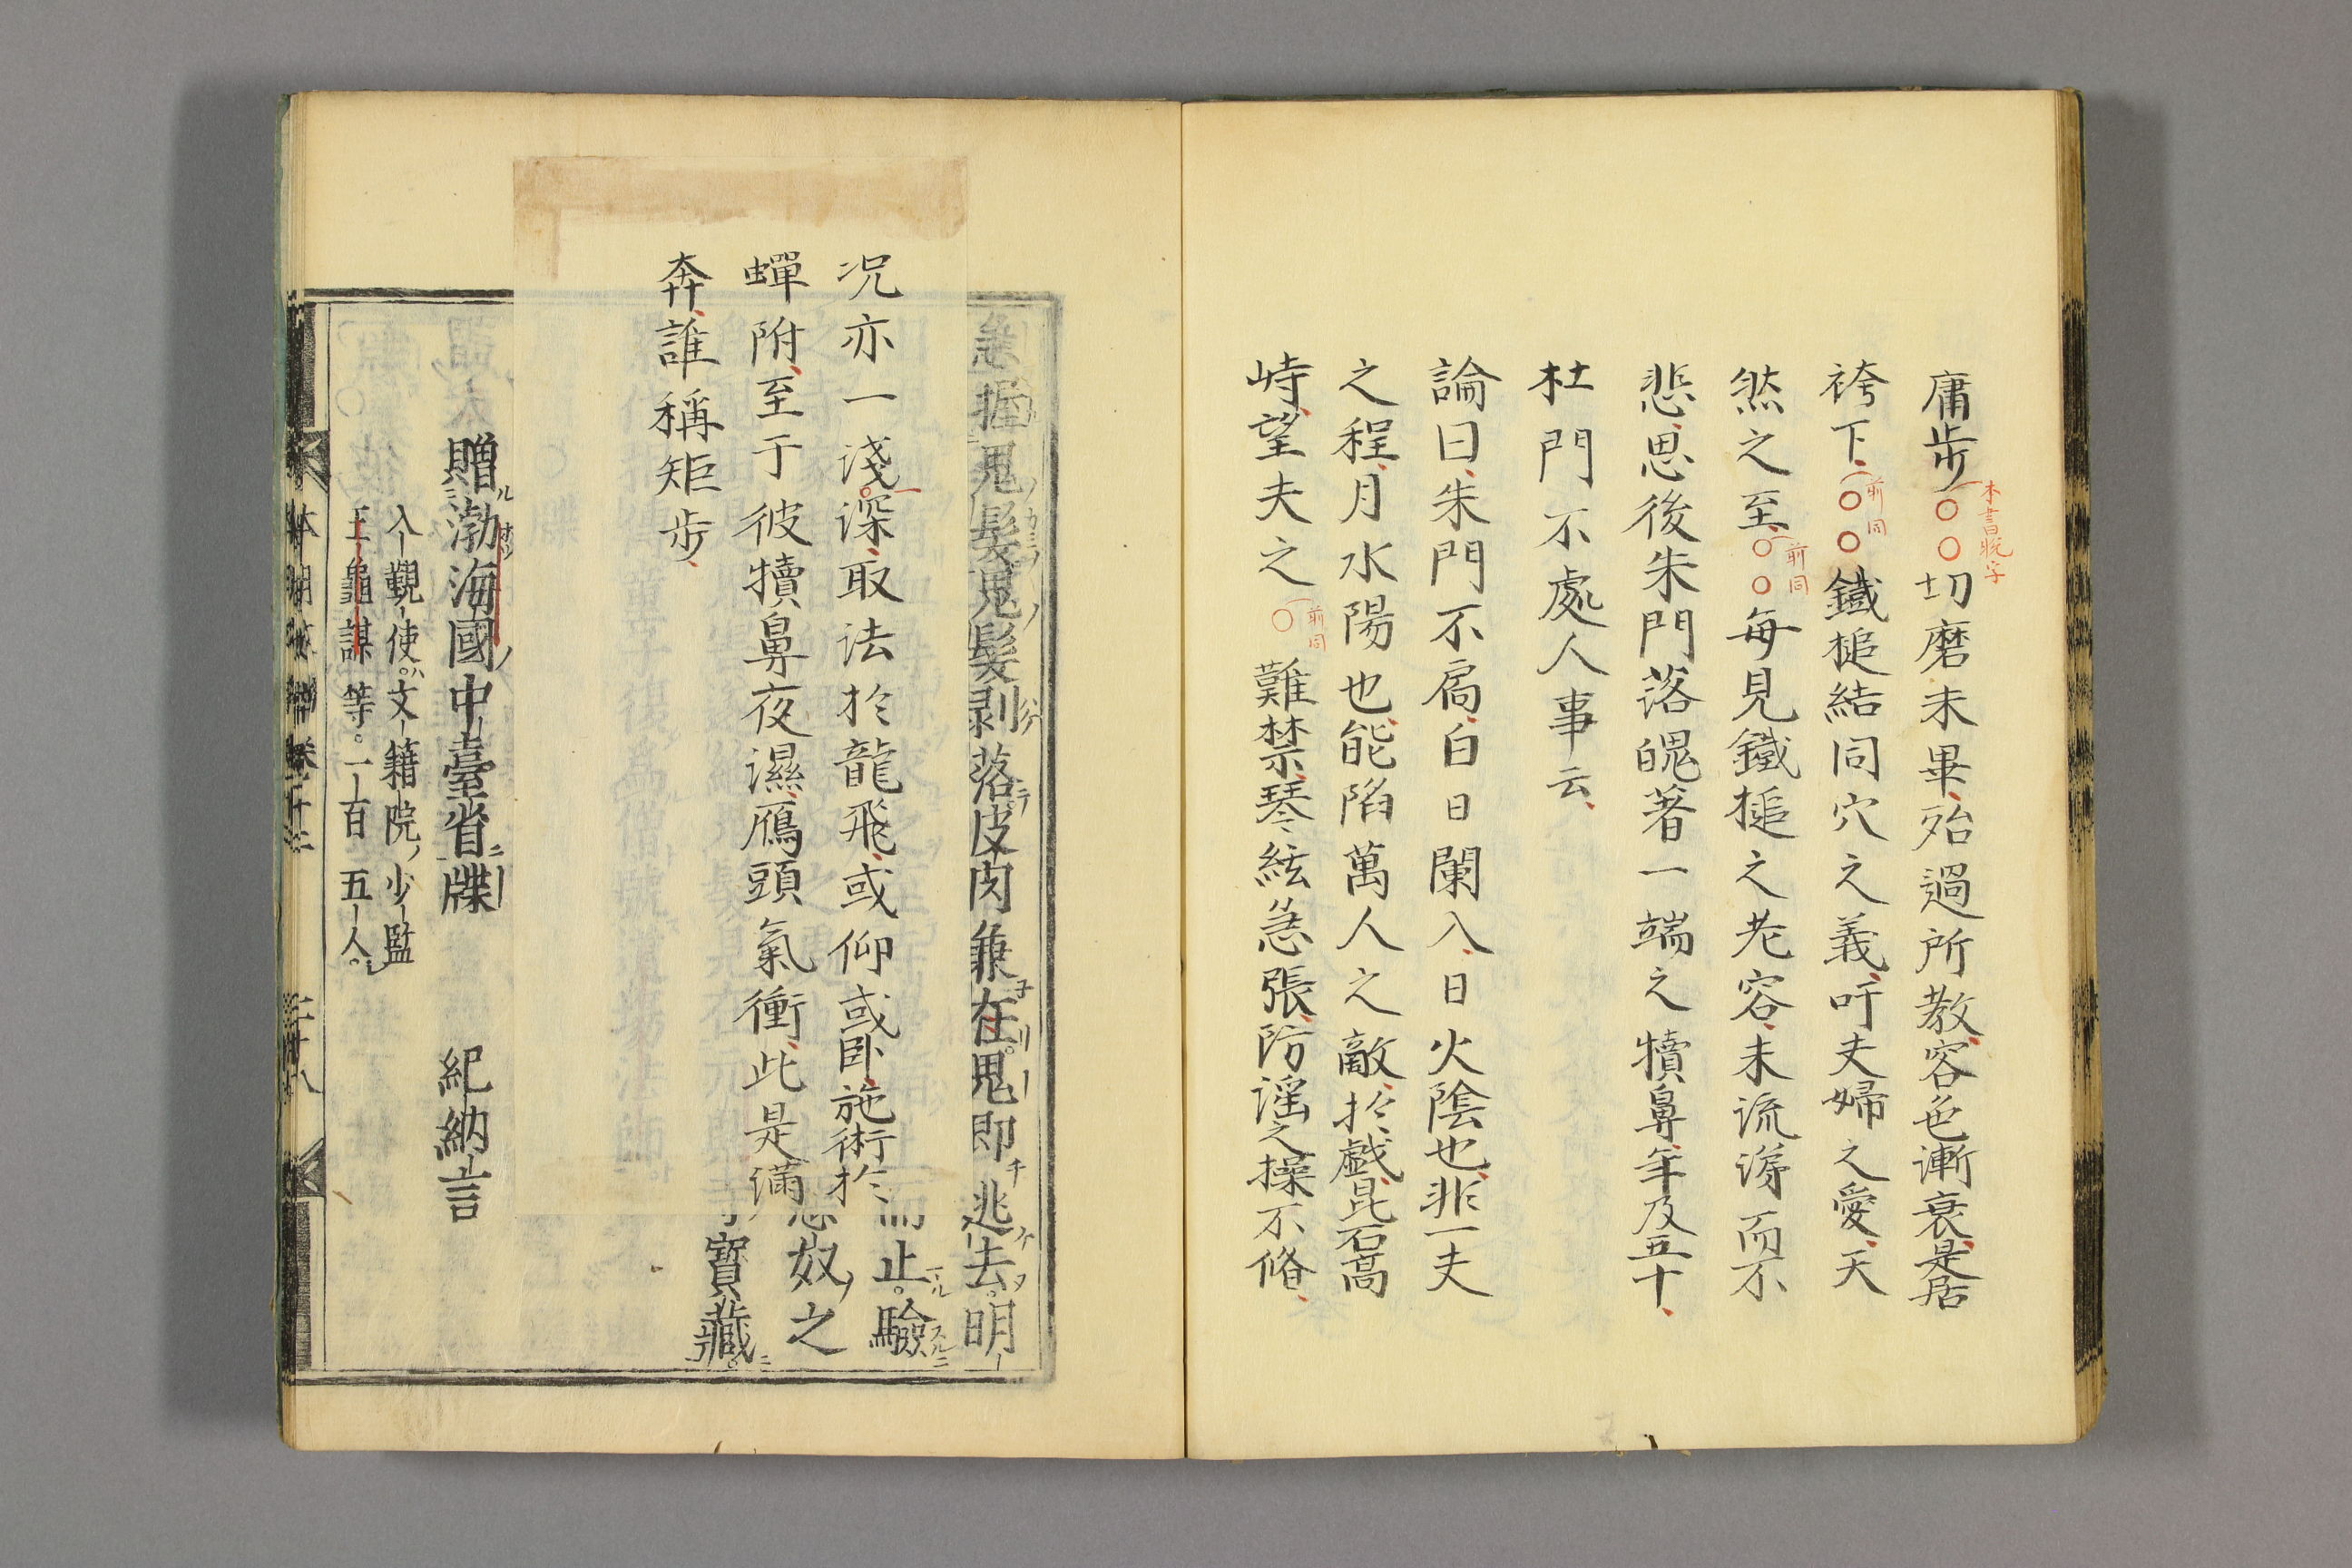 庸歩○○切磨未畢殆過所教容色漸衰是居
本書脱字
袴下○○鐵槌結同穴之義吁夫婦之愛天
前同
然之至○○每見鐵槌之老容未流涕而不
前同
悲思後朱門落魄著一端之犢鼻年及五十
杜門不處人事云
論曰朱門不扄白日闌入日火陰也非一夫
之程月水陽也能陷萬人之敵於戲昆石高
峙望夫之○難禁琴絃急張防谣之操不脩
前同
况亦一淺深取法於龍飛或仰或卧施術於
蟬附至于彼犢鼻夜濕鴈頭氣衝此是㒼
奔誰稱矩歩
急握鬼髮鬼髮剥落皮肉兼在鬼即逃去明
而止驗
奴之
寶藏
贈渤海國中臺省牒 紀納言
入覲使文籍院少監
王龜謀等一百五人
二十八